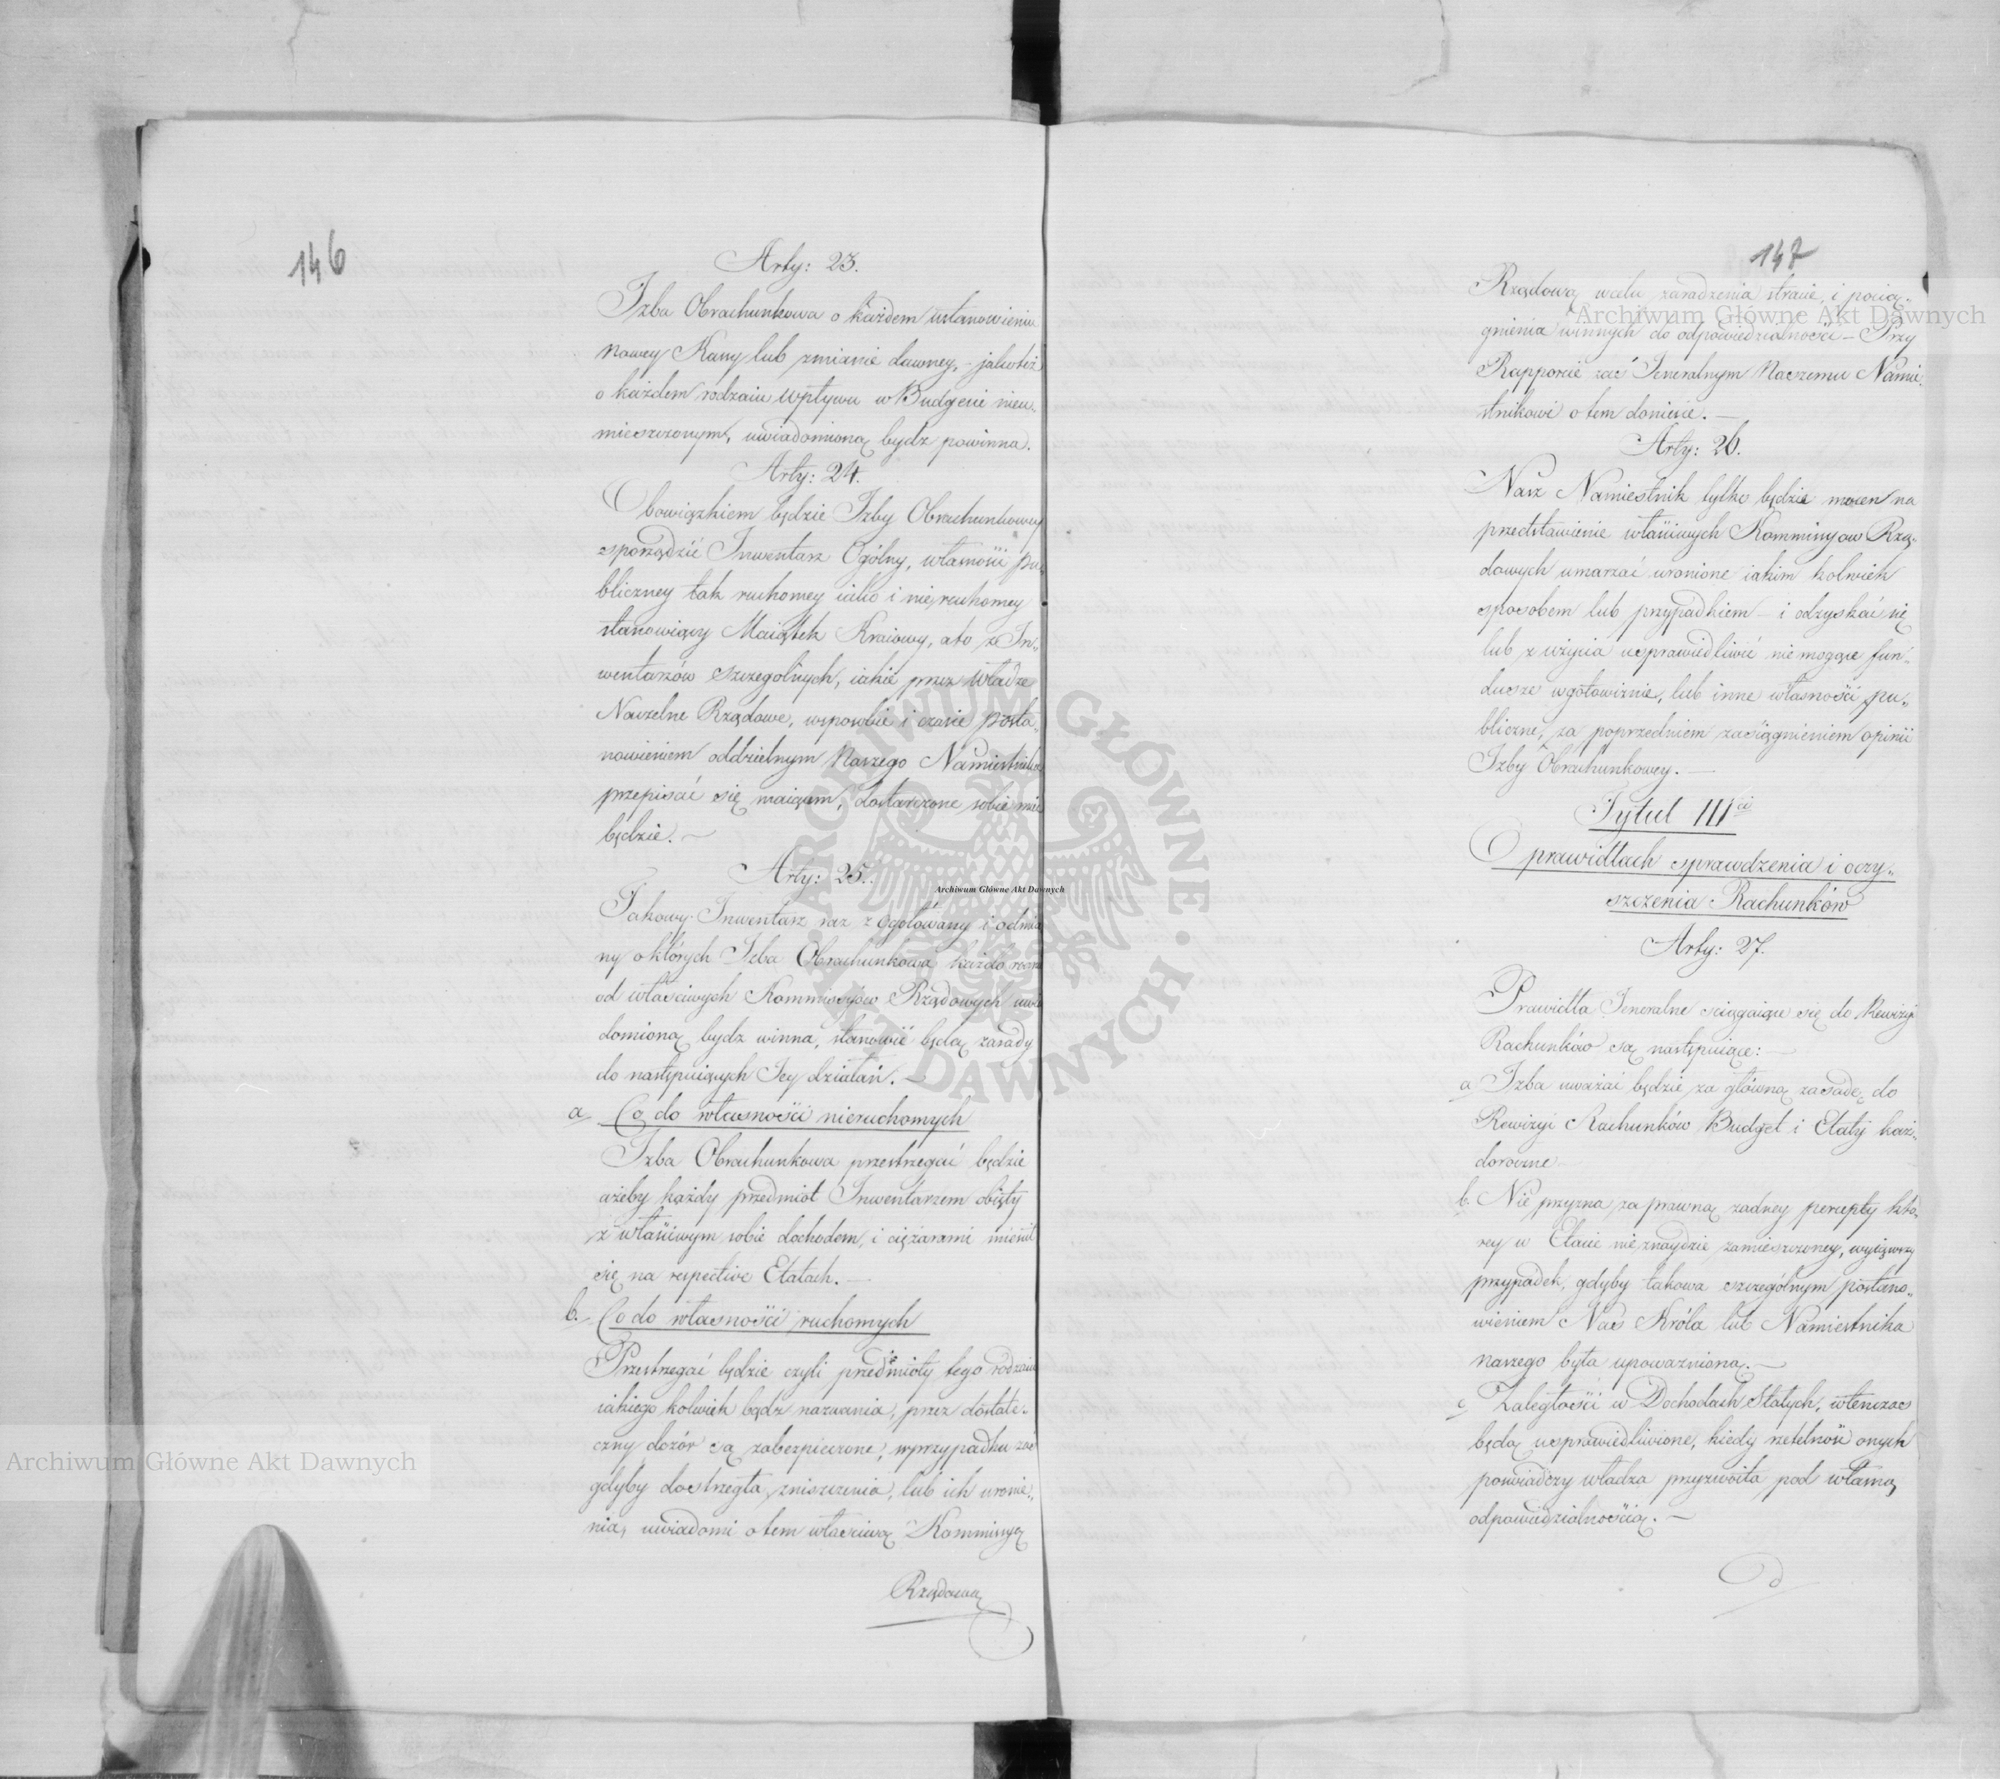 146
Arty: 23.
Izba Obrachunkowa o każdem ustanowieniu
nowey Kassy lub zmianie dawney, - jakoteż
o każdem rodzaiu wpływu w Budgecie nieu„
mieszczonym, uwiadomioną bydz powinna.
Arty: 24.
Obowiązkiem będzie Izby Obrachunkowey
sporządzić Inwentarz Ogólny, własności pu„
bliczney tak ruchomey iako i nieruchomey
stanowiący Maiątek Kraiowy, a to ze In„
wentarzów szczególnych, iakie przez Władze
Naczelne Rządowe, w sposobie i czasie posta„
nowieniem oddzielnym Naszego Namiestnika
przepisać się maiącem, dostarczone sobie mieć
będzie. —
Arty: 25.
Takowy Inwentarz raz zgotowany i odmia
ny o których Izba Obrachunkowa każdo rocznie
od właściwych Kommissyiow Rządowych uwia
domioną bydz winna, stanowić będą zasady
do następuiących Jey działań. —
a Co do własności nieruchomych
Izba Obrachunkowa przestrzegać będzie
ażeby każdy przedmiot Inwentarzem obięty
z właściwym sobie dochodem, i ciężarami mieścił
się na respective Etatach. —
b. Co do własności ruchomych
Przestrzegać będzie czyli przedmioty tego rodzaiu
iakiego kolwiek bądz nazwania, przez dostate„
czny dozór są zabezpieczone, w przypadku zaś
gdyby dostrzegła zniszczenia, lub ich uronie„
nia, uwiadomi o tem właściwą Kommissyą
Rządową
147
Rządową w celu zaradzenia stracie, i pocią„
gnienia winnych do odpowiedzialności — Przy
Rapporcie zaś Jeneralnym Naszemu Namie„
stnikowi o tem doniesie. —
Arty: 26.
Nasz Namiestnik tylko będzie mocen na
przedstawienie właściwych Kommissyow Rzą„
dowych umarzać uronione iakim kolwiek
sposobem lub przypadkiem — i odzyskać się
lub z użycia usprawiedliwić nie mogące fun„
dusze w gotowiznie, lub inne własności pu„
bliczne, za poprzedniem zasiągnieniem opinii
Izby Obrachunkowey. —
Tytuł III ci
O prawidłach sprawdzenia i oczy„
szczenia Rachunków
Arty: 27.
Prawidła Jeneralne sciągaiące się do Rewizyi
Rachunków są następuiące: —
a Izba uważać będzie za główną zasadę do
Rewizyi Rachunków Budget i Etaty każ„
doroczne
b. Nie przyzna za prawną żadney percepty któ„
rey w Etacie nie znaydzie zamieszczoney, wyiąwszy
przypadek, gdyby takowa szczególnym postano„
wieniem Nas Króla lub Namiestnika
naszego była upoważnioną. —
c Zaległości w Dochodach Stałych, wtenczas
będą usprawiedliwione, kiedy rzetelność onych
poświadczy władza przyzwoita, pod własną
odpowiedzialnością. —
Archiwum Główne Akt Dawnych
Archiwum Główne Akt Dawnych
Archiwum Główne Akt Dawnych
ARCHIWUM GŁÓWNE · AKT DAWNYCH ·